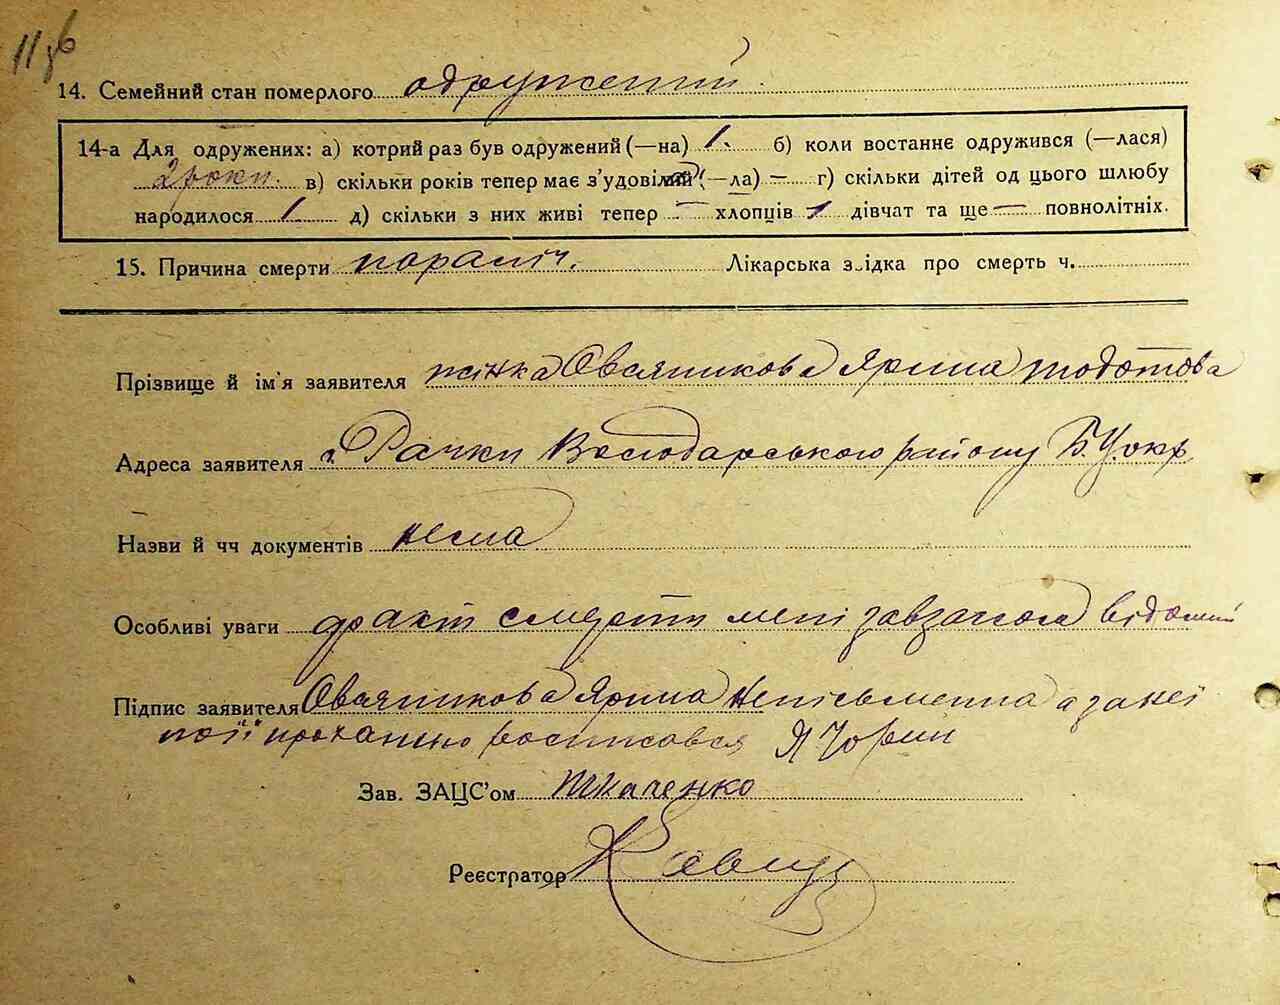 11зв
14. Семейний стан померлого одружений
14-а Для одружених: а) котрий раз був одружений (—на) 1. б) коли востаннє одружився (—лася)
2 роки. в) скільки років тепер має з'удовілий (—ла) — г) скільки дітей од цього шлюбу
народилося 1. д) скільки з них живі тепер — хлопців 1 дівчат та ще — повнолітніх.
15. Причина смерти параліч. Лікарська звідка про смерть ч.
Прізвище й ім'я заявителя жінка Овсяникова Ярина Тодотова
Адреса заявителя с. Рачки Володарського району Б.Ц. окр
Назви й чч документів нема
Особливі уваги факт смерти мені завзагсом відомий
Підпис заявителя Овсяникова Ярина неписьменна а за неї
по її проханню росписовся Я
Зав. ЗАЦС'ом Ткаченко
Реєстратор